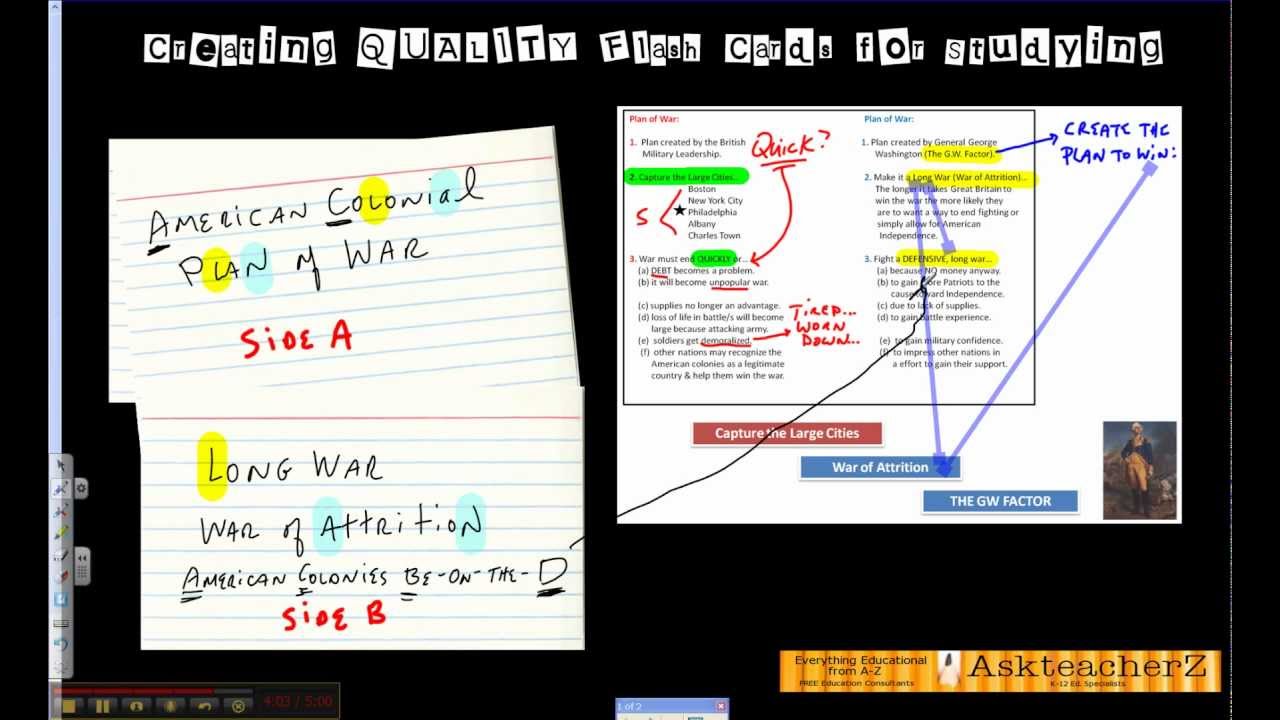 Creating QUALITY Flash Cards for Studying
AMERICAN COLONIAL
PLAN of WAR
SIDE A
LONG WAR
WAR OF AttritioN
AMERICAN COLONIES BE-ON-THE-D
SIDE B
Plan of War:
1. Plan created by the British
Military Leadership.
QUICK?
2. Capture the Large Cities...
Boston
New York City
5
★ Philadelphia
Albany
Charles Town
3. War must end QUICKLY or...
(a) DEBT becomes a problem.
(b) it will become unpopular war.
(c) supplies no longer an advantage.
(d) loss of life in battle/s will become
large because attacking army.
(e) soldiers get demoralized.
TIRED...
WORN
DOWN...
(f) other nations may recognize the
American colonies as a legitimate
country & help them win the war.
Plan of War:
1. Plan created by General George
Washington (The G.W. Factor).
CREATE THE
PLAN TO WIN:
2. Make it a Long War (War of Attrition)...
The longer it takes Great Britain to
win the war the more likely they
are to want a way to end fighting or
simply allow for American
Independence.
3. Fight a DEFENSIVE, long war...
(a) because NO money anyway.
(b) to gain more Patriots to the
cause toward Independence.
(c) due to lack of supplies.
(d) to gain battle experience.
(e) to gain military confidence.
(f) to impress other nations in
a effort to gain their support.
Capture the Large Cities
War of Attrition
THE GW FACTOR
Everything Educational
from A-Z
FREE Education Consultants
AskteacherZ
K-12 Ed. Specialists
4:03 / 5:00
1 of 2